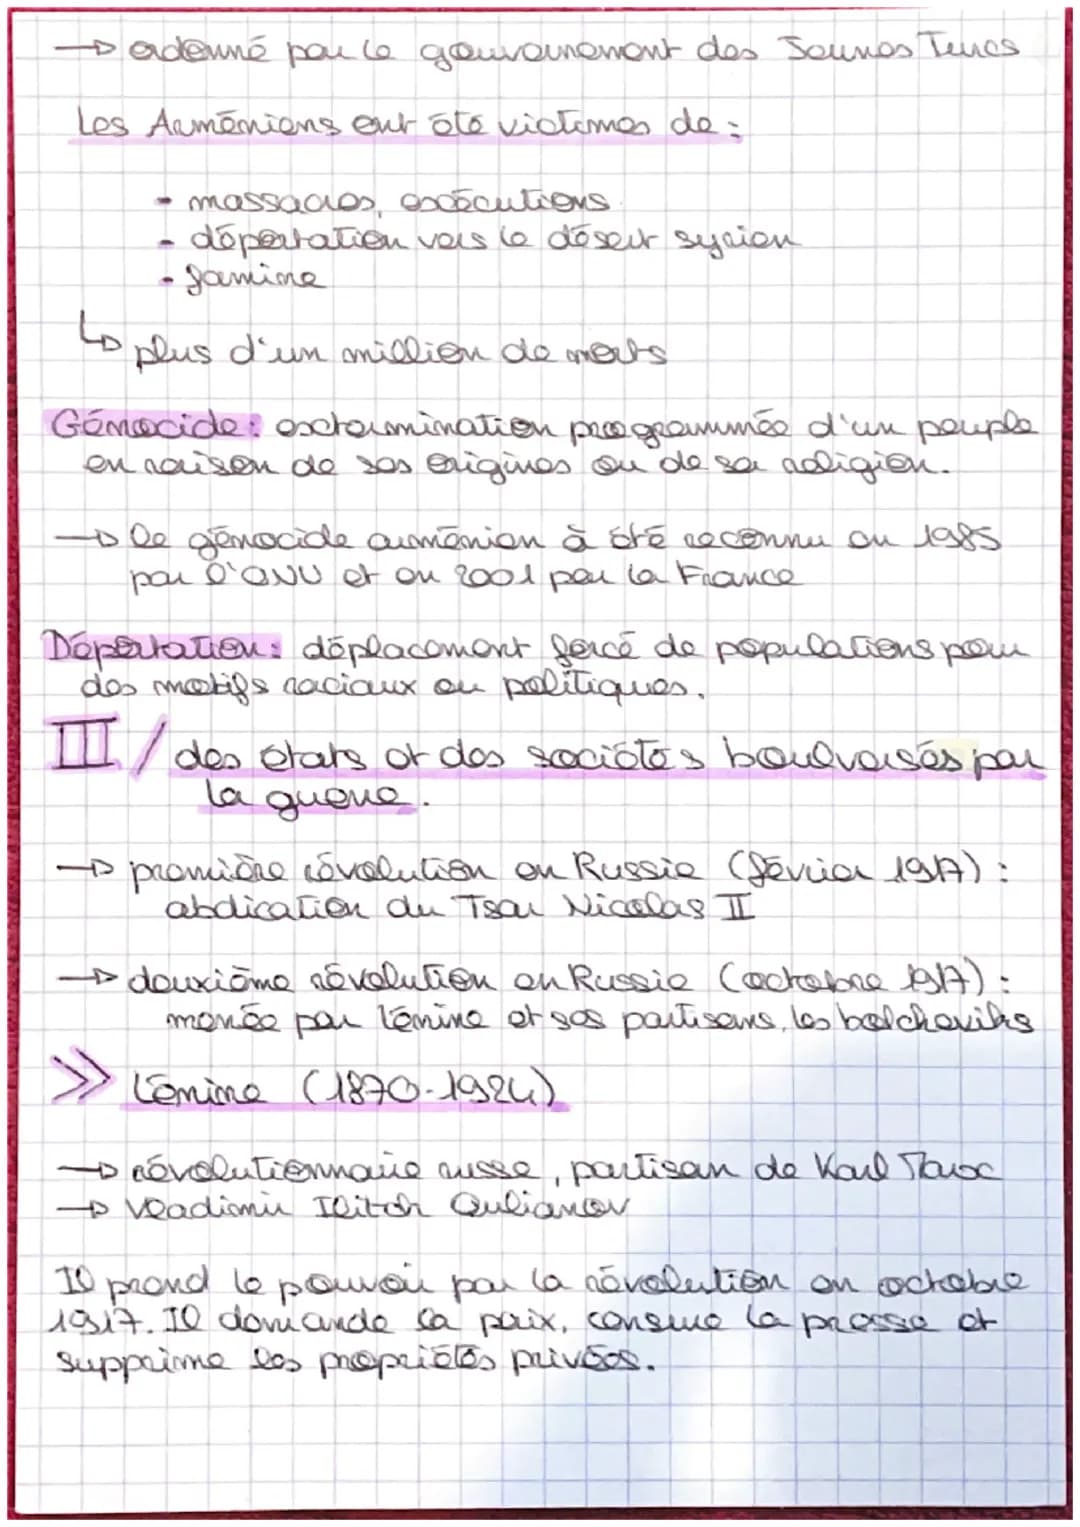 → ordonné par le gouvernement des Jeunes Turcs
Les Arméniens ont été victimes de :
- massacres, exécutions
- déportation vers le désert syrien
- famine
↳ plus d'un million de morts
Génocide : extermination programmée d'un peuple
en raison de ses origines ou de sa religion.
→ le génocide arménien à été reconnu en 1985
par l'ONU et en 2001 par la France
Déportation : déplacement forcé de populations pour
des motifs raciaux ou politiques.
III / des états et des sociétés boulversés par
la guerre.
→ première révolution en Russie (février 1917) :
abdication du Tsar Nicolas II
→ deuxième révolution en Russie (octobre 1917) :
menée par Lénine et ses partisans, les bolcheviks
>> Lénine (1870-1924)
→ révolutionnaire russe, partisan de Karl Marx
→ Vladimir Ilitch Oulianov
Il prend le pouvoir par la révolution en octobre
1917. Il demande la paix, censure la presse et
supprime les propriétés privées.